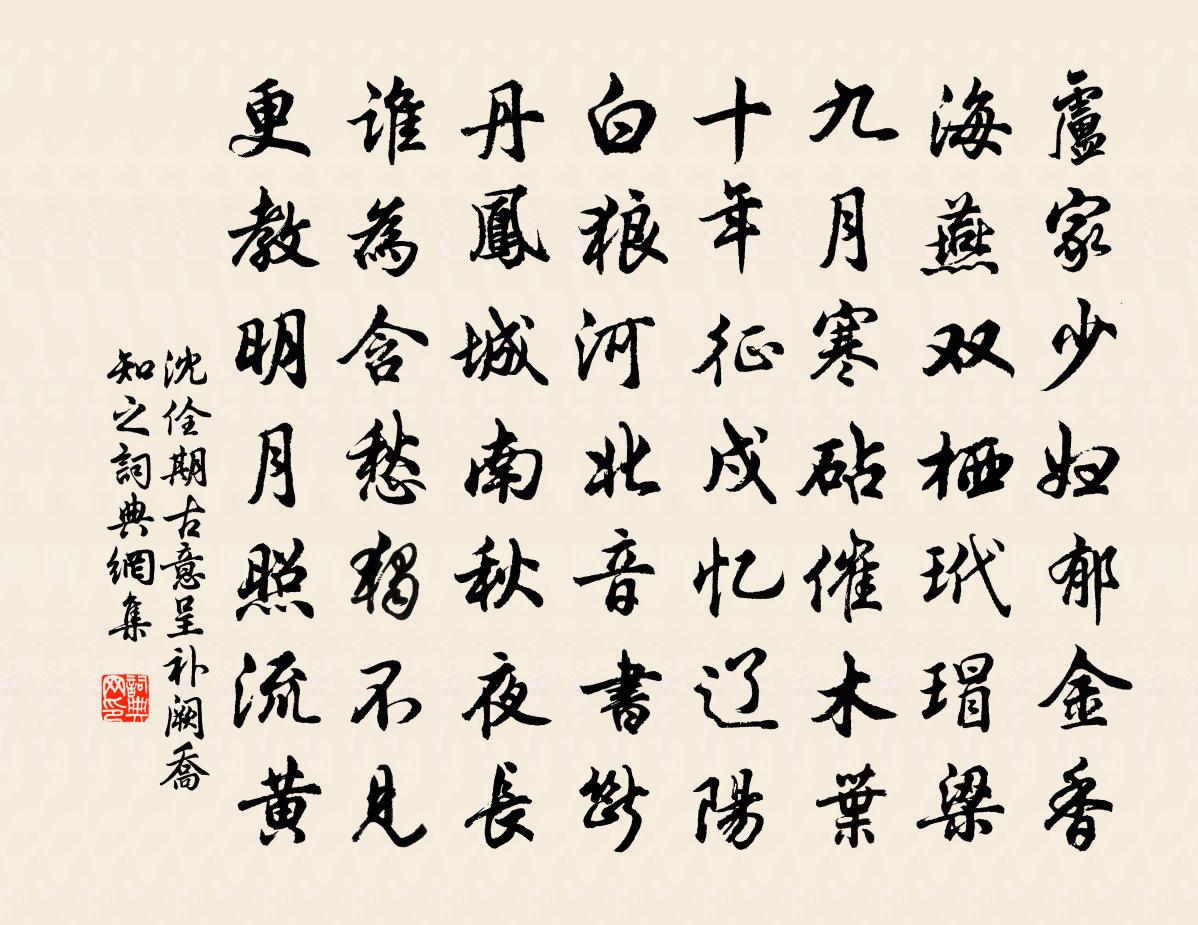 盧家少妇郁金香
海燕双栖玳瑁梁
九月寒砧催木葉
十年征戍忆辽陽
白狼河北音書斷
丹鳳城南秋夜長
谁為含愁獨不見
更教明月照流黃
沈佺期古意呈补阙喬
知之詞典網集
詞典网印